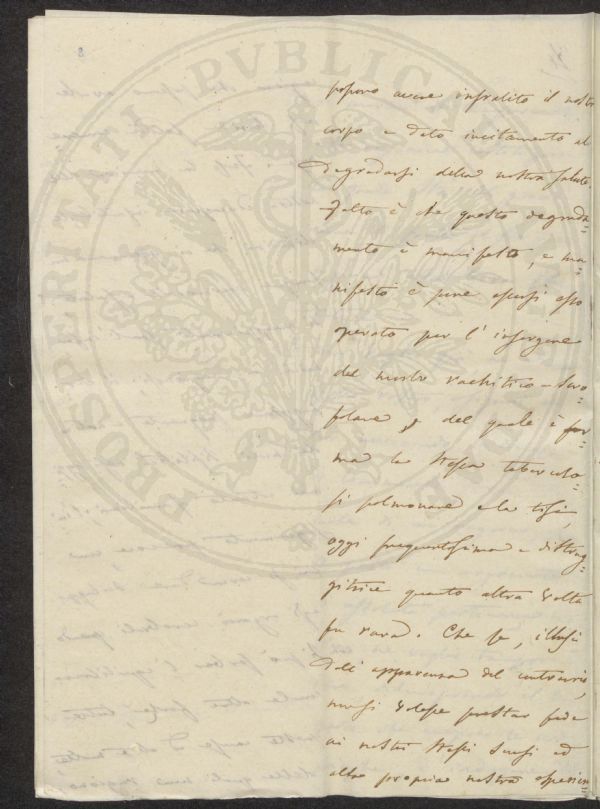 8
PROSPERITATI PVBLICAE AVGENDAE
possono avere infralito il nostro
corpo e dato incitamento al
degradarsi della nostra salute.
Fatto è che questo degrada=
mento è manifesto, e ma=
nifesto è pure essersi esso
operato per l'insorgere
del morbo rachitico-scro=
folare, del quale è for
ma la stessa tubercolo=
si polmonare e la tisi,
oggi frequentissima e distrug=
gitrice quanto altra volta
fu rara. Che se, illusi
dall'apparenza del contrario,
non si volesse prestar fede
ai nostri stessi sensi ed
alla propria nostra esperien